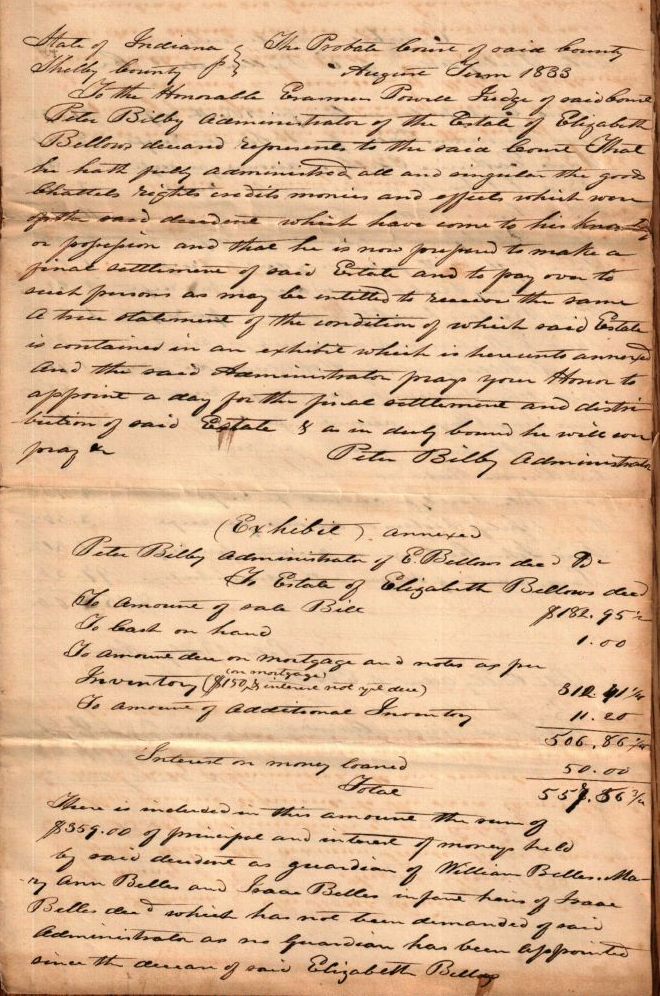 State of Indiana } The Probate Court of said County
Shelby County } August Term 1833
To the Honorable Erasmus Powell Judge of said Court
Peter Bilby Administrator of the Estate of Elizabeth
Bellows deceasd represents to the said Court That
he hath fully administred all and singular the goods
Chattels rights credits monies and effects which were
of the said decedent which have come to his
or possession and that he is now prepared to make a
final settlement of said Estate and to pay over to
such persons as may be intitled to receive the same
A true statement of the condition of which said Estate
is contained in an exhibit which is hereunto annexed
And the said Administrator prays your Honor to
appoint a day for the final settlement and distri
bution of said Estate & as in duty bound he will ever
pray &c Peter Bilby Administrator
(Exhibit) annexed
Peter Bilby Administrator of E. Bellows decd Dr
To Estate of Elizabeth Bellows decd
To amount of sale Bill $182.95 1/2
To Cash on hand 1.00
To amount due on mortgage and notes as per
(on mortgage)
Inventory ($150 & interest not yet due) 312
To amount of Additional Inventory 11.20
506.86
Interest on money loaned 50.00
Total 556 3/4
There is included in this amount the sum of
$359.00 of principal and interest of moneys held
by said decedent as guardian of William Belles. Ma-
ry Ann Belles and Isaac Belles infant heirs of Isaac
Belles decd which has not been demanded of said
Administrator as no Guardian has been appointed
since the decease of said Elizabeth Bellows